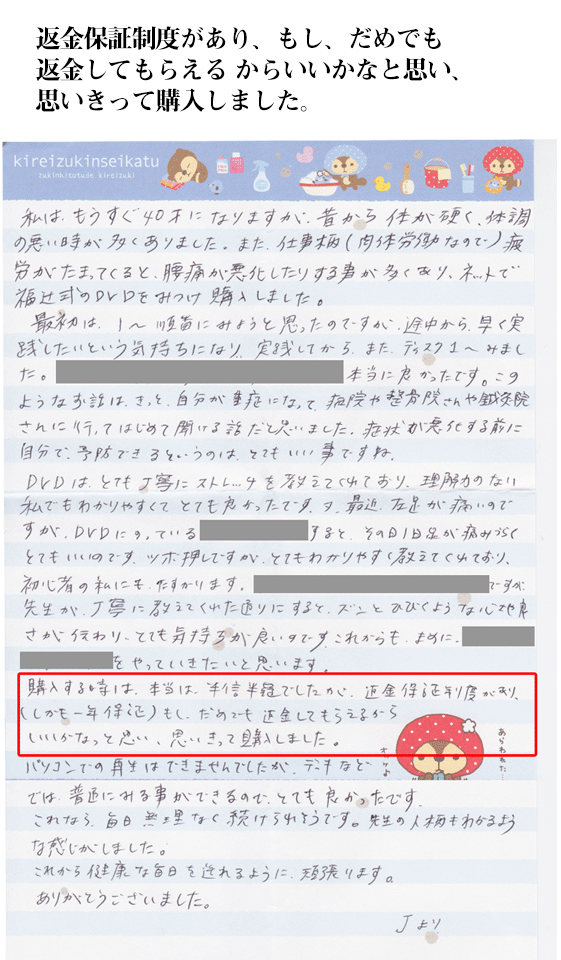 返金保証制度があり、もし、だめでも
返金してもらえる からいいかなと思い、
思いきって購入しました。
kireizukinseikatu
zukinkitotude kireizuki
私は、もうすぐ40才になりますが、昔から体が硬く、体調
の悪い時が多くありました。また、仕事柄(肉体労働なので)疲
労がたまってくると、腰痛が悪化したりする事が多くあり、ネットで
福辻式のDVDをみつけ購入しました。
最初は、1〜順番にみようと思ったのですが、途中から、早く実
践したいという気持ちになり、実践してから、また、ディスク1〜みまし
た。 本当に良かったです。この
ようなお話は、きっと、自分が重症になって、病院や整骨院さんや鍼灸院
さんに行ってはじめて聞ける話だと思いました。症状が悪化する前に
自分で、予防できるというのは、とてもいい事ですね。
DVDは、とても丁寧にストレッチを教えてくれており、理解力のない
私でもわかりやすくてとても良かったです。又、最近、左足が痛いので
すが、DVDにのっている すると、その日1日足が痛みづらく
とてもいいのです。ツボ押しですが、とてもわかりやすく教えてくれており、
初心者の私にも、たすかります。 ですが、
先生が、丁寧に教えてくれた通りにすると、ズンとひびくような心地良
さが伝わり、とても気持ちが良いのです。これからも、まめに、
をやっていきたいと思います。
購入する時は、本当は、半信半疑でしたが、返金保証制度があり、
(しかも一年保証)もし、だめでも返金してもらえるから
いいかなっと思い、思いきって購入しました。
あらわれた…
オケよ
パソコンでの再生はできませんでしたが、デッキなど
では、普通にみる事ができるので、とても良かったです。
これなら、毎日無理なく続けられそうです。先生の人柄もわかるよう
な感じがしました。
これから健康な毎日を送れるように、頑張ります。
ありがとうございました。
Jより